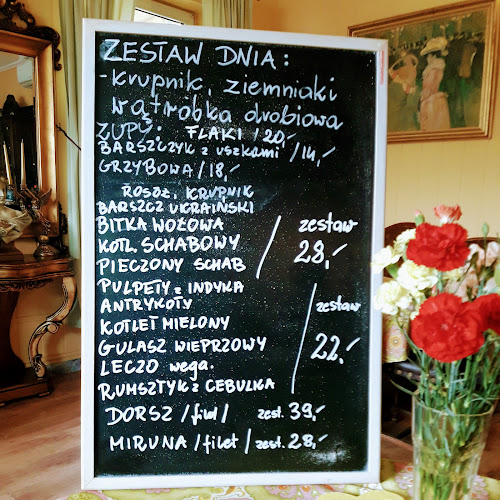 ZESTAW DNIA:
-krupnik, ziemniaki
wątróbka drobiowa
ZUPY: FLAKI /20,-
BARSZCZYK z uszkami /14,-
GRZYBOWA /18,-
ROSÓŁ, KRUPNIK
BARSZCZ UKRAIŃSKI
BITKA WOŁOWA
KOTL. SCHABOWY / zestaw 28,-
PIECZONY SCHAB
PULPETY z INDYKA
ANTRYKOTY / zestaw
KOTLET MIELONY
GULASZ WIEPRZOWY 22,-
LECZO wega.
RUMSZTYK z CEBULKA
DORSZ /filet/ zest. 39,-
MIRUNA /filet/ zest. 28,-